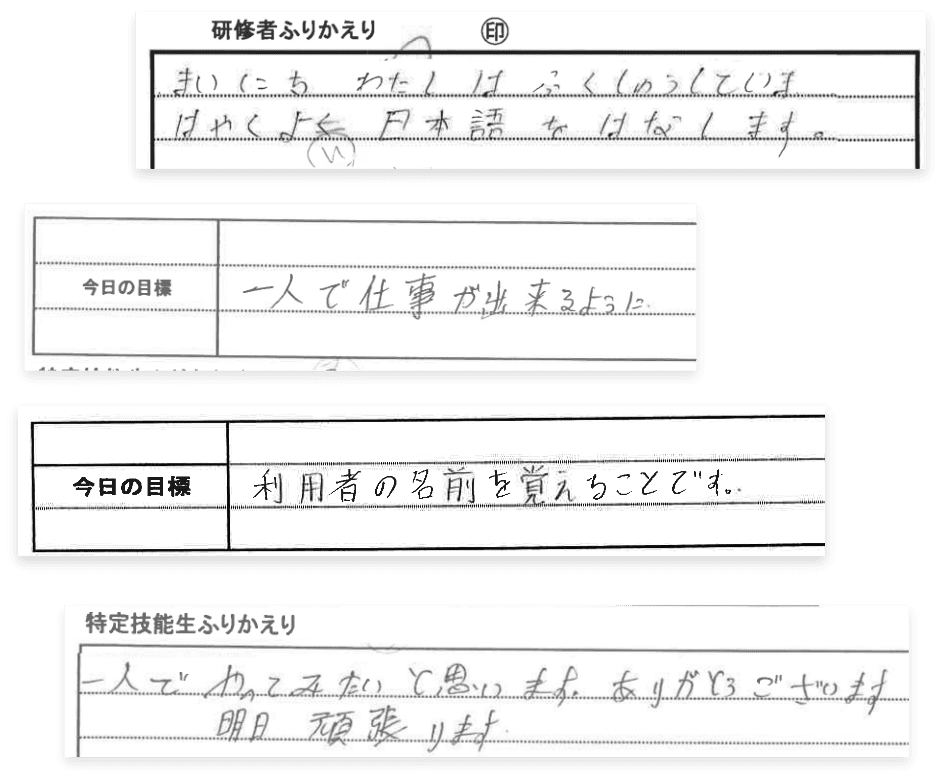 研修者ふりかえり ㊞
まいにち わたし は ふくしゅうしていま
はやく よく 日本語 を はなします。
い
今日の目標
一人で仕事が出来るように.
今日の目標
利用者の名前を覚えることです。
特定技能生ふりかえり
一人で やってみたいと思います。ありがとうございます
明日 頑張ります.